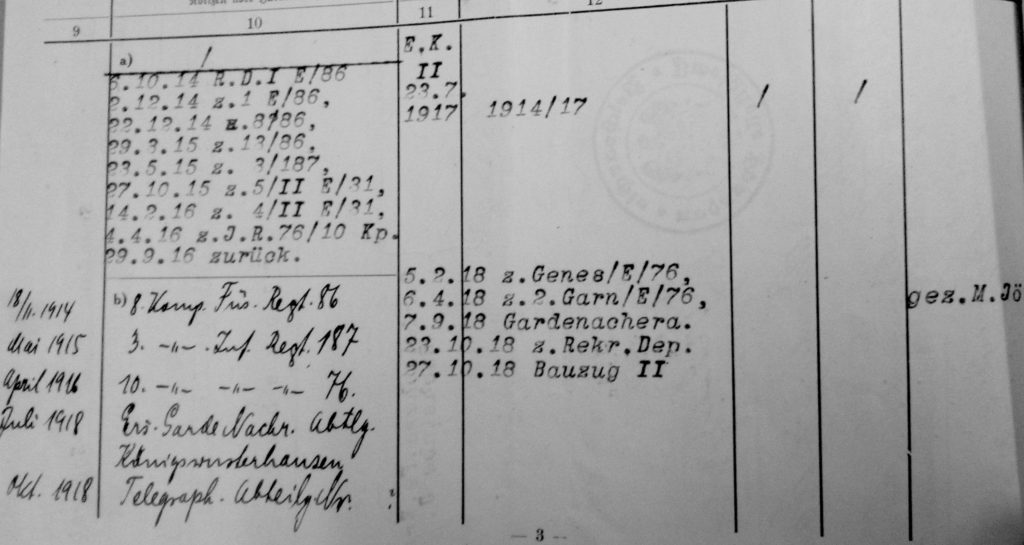 9
10
11
12
a) /
6.10.14 R.D.I E/86
2.12.14 z.1 E/86,
22.12.14 z.8/86,
29.3.15 z.13/86,
23.5.15 z. 3/187,
27.10.15 z.5/II E/31,
14.2.16 z. 4/II E/31,
4.4.16 z.J.R.76/10 Kp.
29.9.16 zurück.
E.K.
II
23.7.
1917
1914/17
/
/
5.2.18 z.Genes/E/76,
6.4.18 z.2.Garn/E/76,
7.9.18 Gardenachera.
23.10.18 z.Rekr.Dep.
27.10.18 Bauzug II
gez.M.Jö
18/11. 1914
b) 8. Komp. Füs. Regt. 86
Mai 1915
3. -„- . Inf. Regt. 187
April 1916
10. -„- -„- -„- 76.
Juli 1918
Ers. Garde Nachr. Abtlg.
Königswusterhausen
Okt. 1918
Telegraph. Abteilg Nr. ?
— 3 —